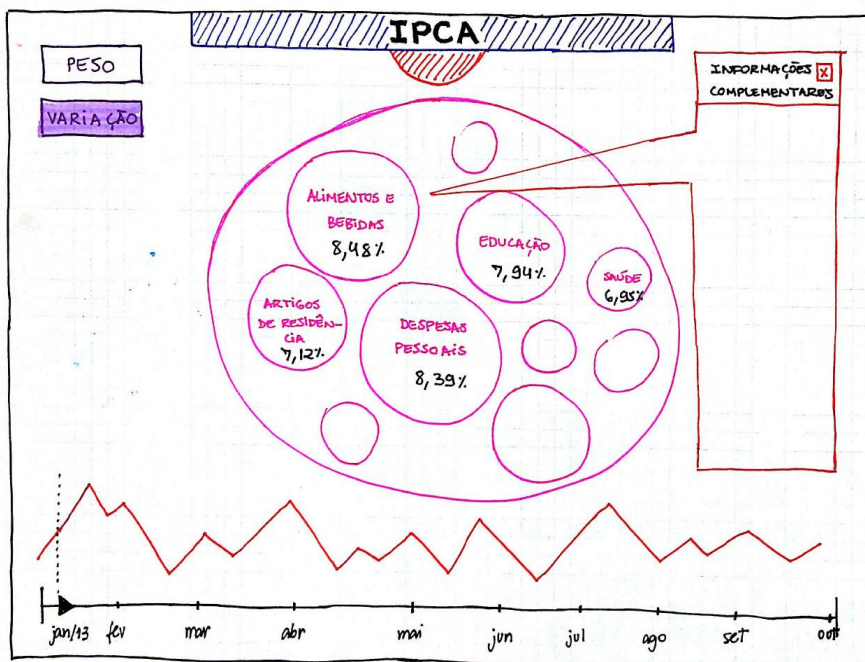 IPCA
PESO
VARIAÇÃO
INFORMAÇÕES X
COMPLEMENTARES
ALIMENTOS E
BEBIDAS
8,48%
EDUCAÇÃO
7,94%
SAÚDE
6,95%
ARTIGOS
DE RESIDÊN-
CIA
7,12%
DESPESAS
PESSOAIS
8,39%
jan/13 fev mar abr mai jun jul ago set out